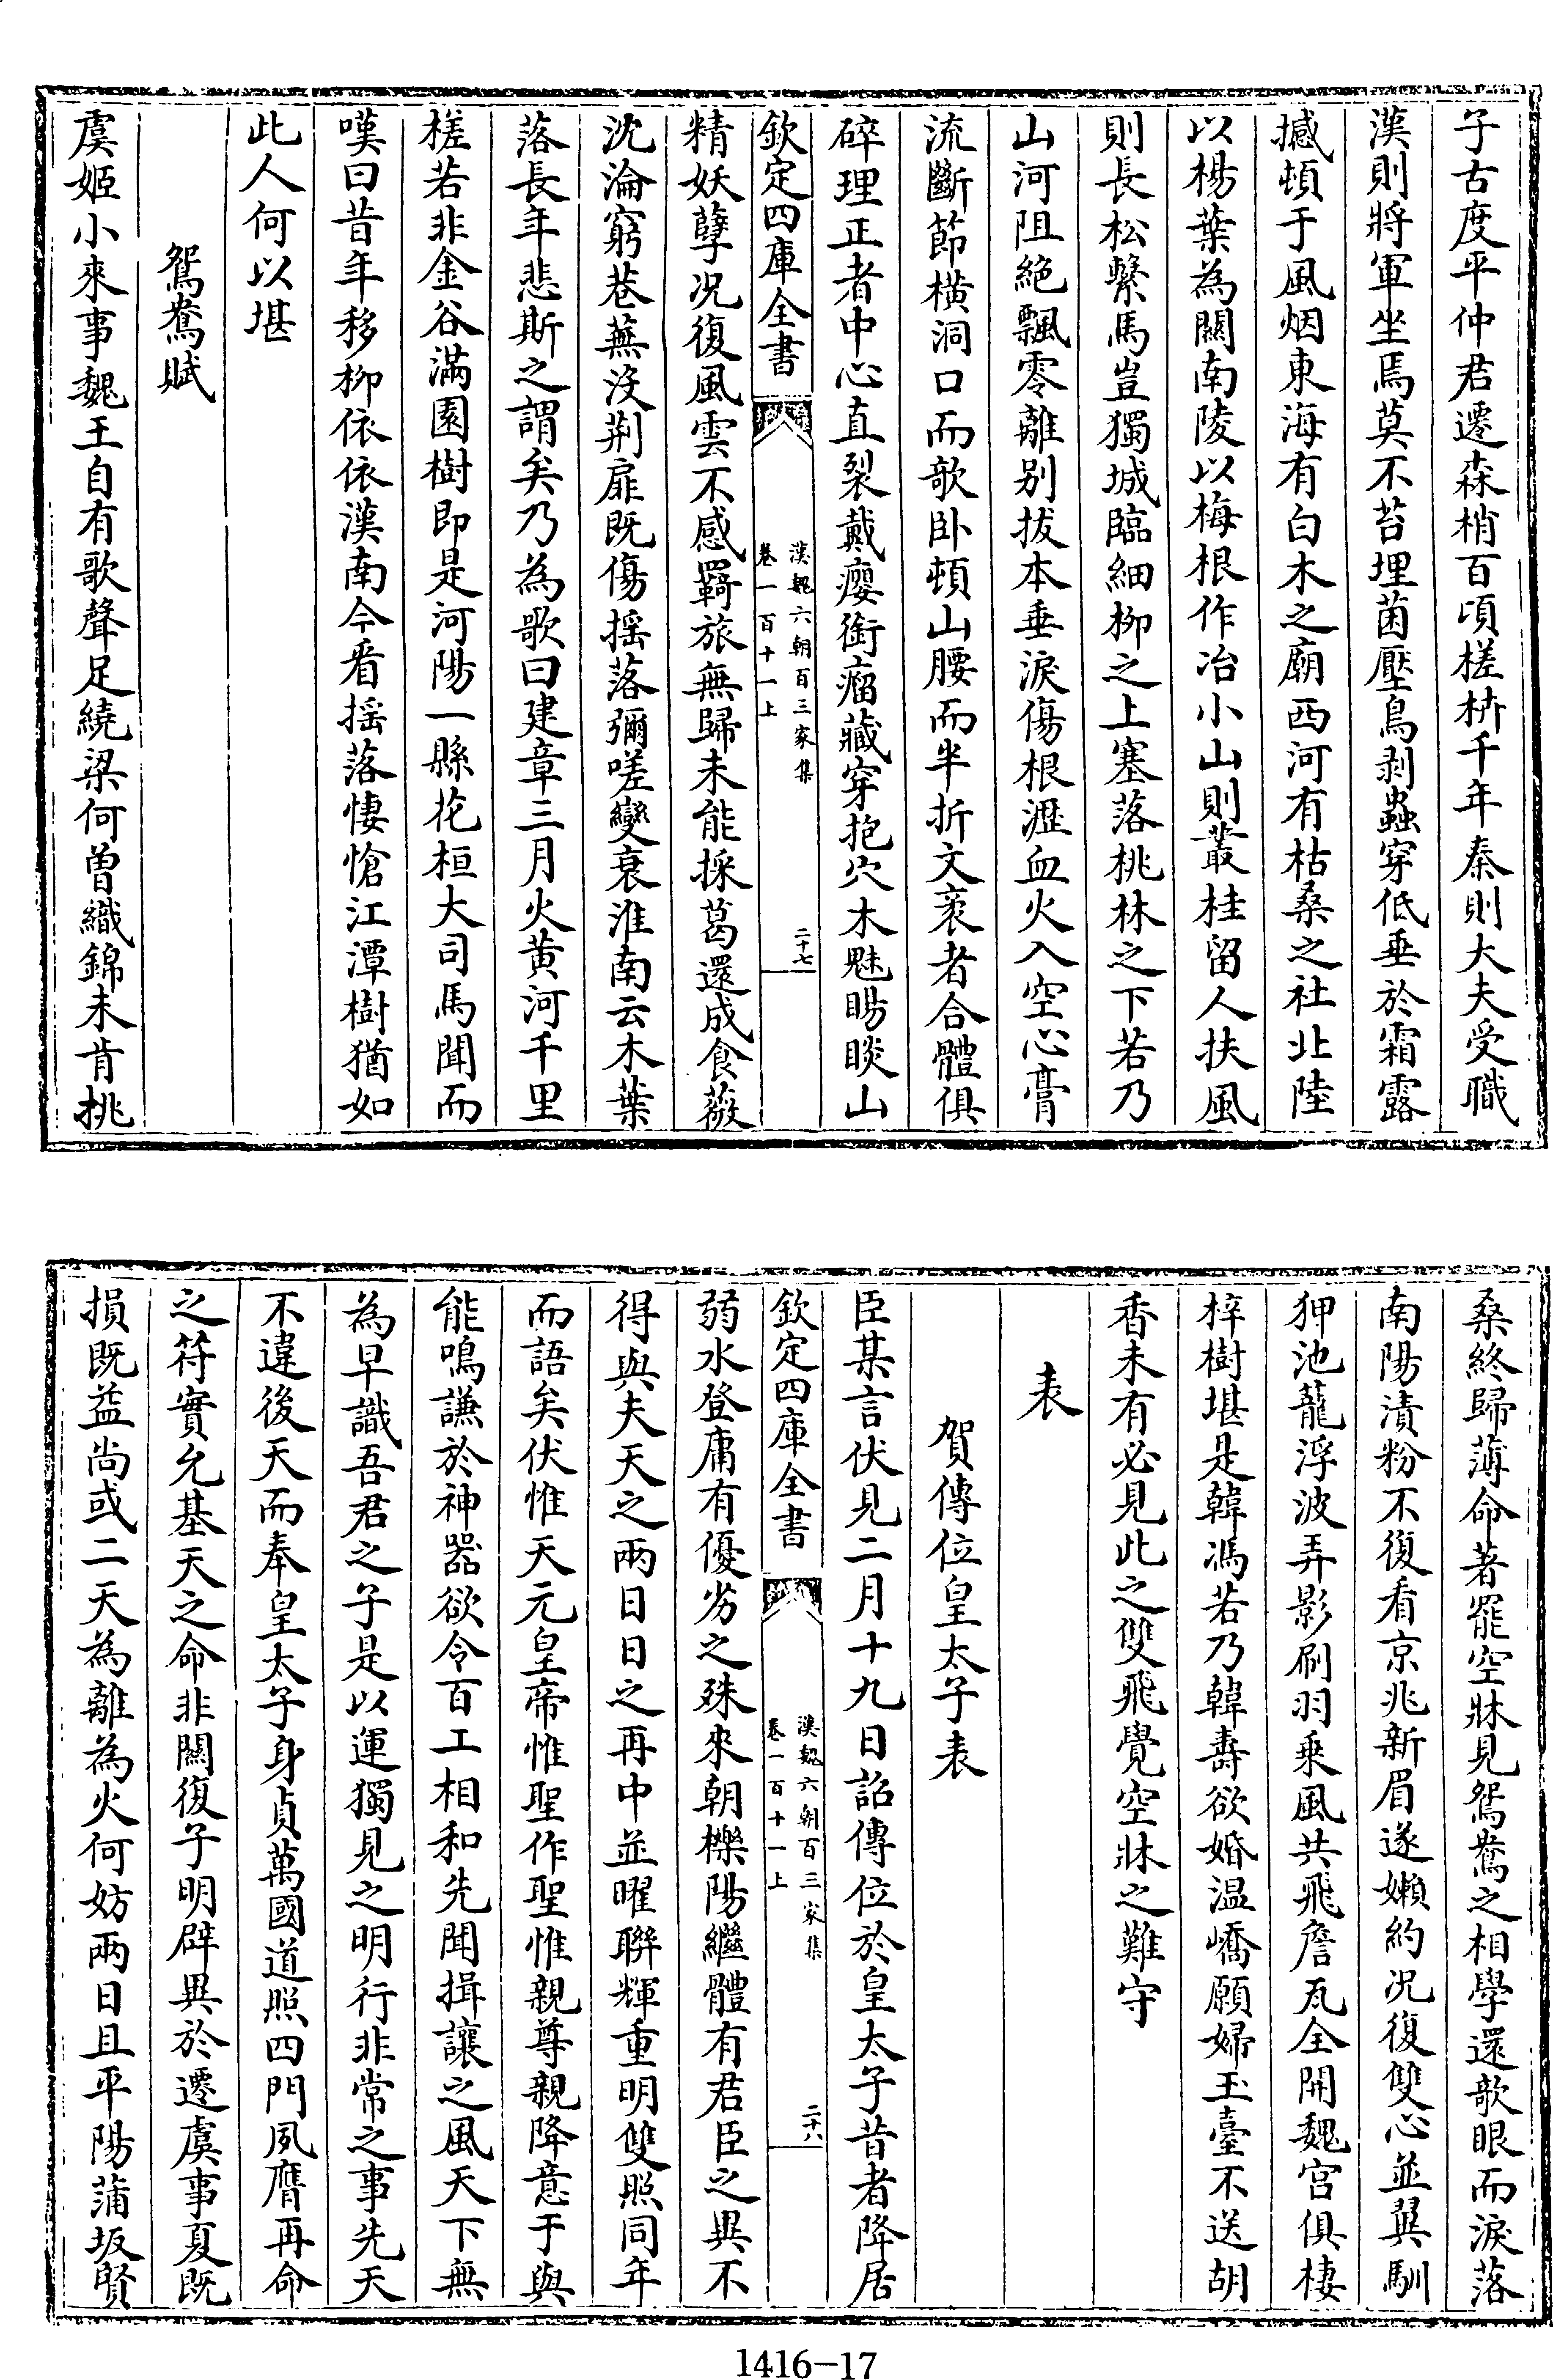 子古度平仲君遷森梢百頃槎枿千年秦則大夫受職
漢則將軍坐焉莫不苔埋菌壓鳥剥蟲穿低垂於霜露
撼頓于風烟東海有白木之廟西河有枯桑之社北陸
以楊葉為關南陵以梅根作冶小山則叢桂留人扶風
則長松繫馬豈獨城臨細柳之上塞落桃林之下若乃
山河阻絶飄零離别拔本垂淚傷根瀝血火入空心膏
流斷節横洞口而欹卧頓山腰而半折文衺者合體俱
碎理正者中心直裂戴癭銜瘤藏穿抱穴木魅睗睒山
欽定四庫全書
漢魏六朝百三家集
卷一百十一上
二十七
精妖孽况復風雲不感羇旅無歸未能採葛還成食薇
沈淪窮巷蕪没荆扉既傷揺落彌嗟變衰淮南云木葉
落長年悲斯之謂矣乃為歌曰建章三月火黄河千里
槎若非金谷滿園樹即是河陽一縣花桓大司馬聞而
嘆曰昔年移柳依依漢南今看揺落悽愴江潭樹猶如
此人何以堪
鴛鴦賦
虞姬小來事魏王自有歌聲足繞梁何曾織錦未肯挑
桑終歸薄命著罷空牀見鴛鴦之相學還欹眼而淚落
南陽漬粉不復看京兆新眉遂嬾約况復雙心並翼馴
狎池籠浮波弄影刷羽乘風共飛詹瓦全開魏宫俱棲
梓樹堪是韓馮若乃韓壽欲婚温嶠願婦玉臺不送胡
香未有必見此之雙飛覺空牀之難守
表
賀傳位皇太子表
臣某言伏見二月十九日詔傳位於皇太子昔者降居
欽定四庫全書
漢魏六朝百三家集
卷一百十一上
二十八
弱水登庸有優劣之殊來朝櫟陽繼體有君臣之異不
得與夫天之兩日日之再中並曜聨輝重明雙照同年
而語矣伏惟天元皇帝惟聖作聖惟親尊親降意于與
能鳴謙於神器欲令百工相和先聞揖讓之風天下無
為早識吾君之子是以運獨見之明行非常之事先天
不違後天而奉皇太子身貞萬國道照四門夙膺再命
之符實允基天之命非關復子明辟異於遷虞事夏既
損既益尚或二天為離為火何妨兩日且平陽蒲坂賢
1416-17